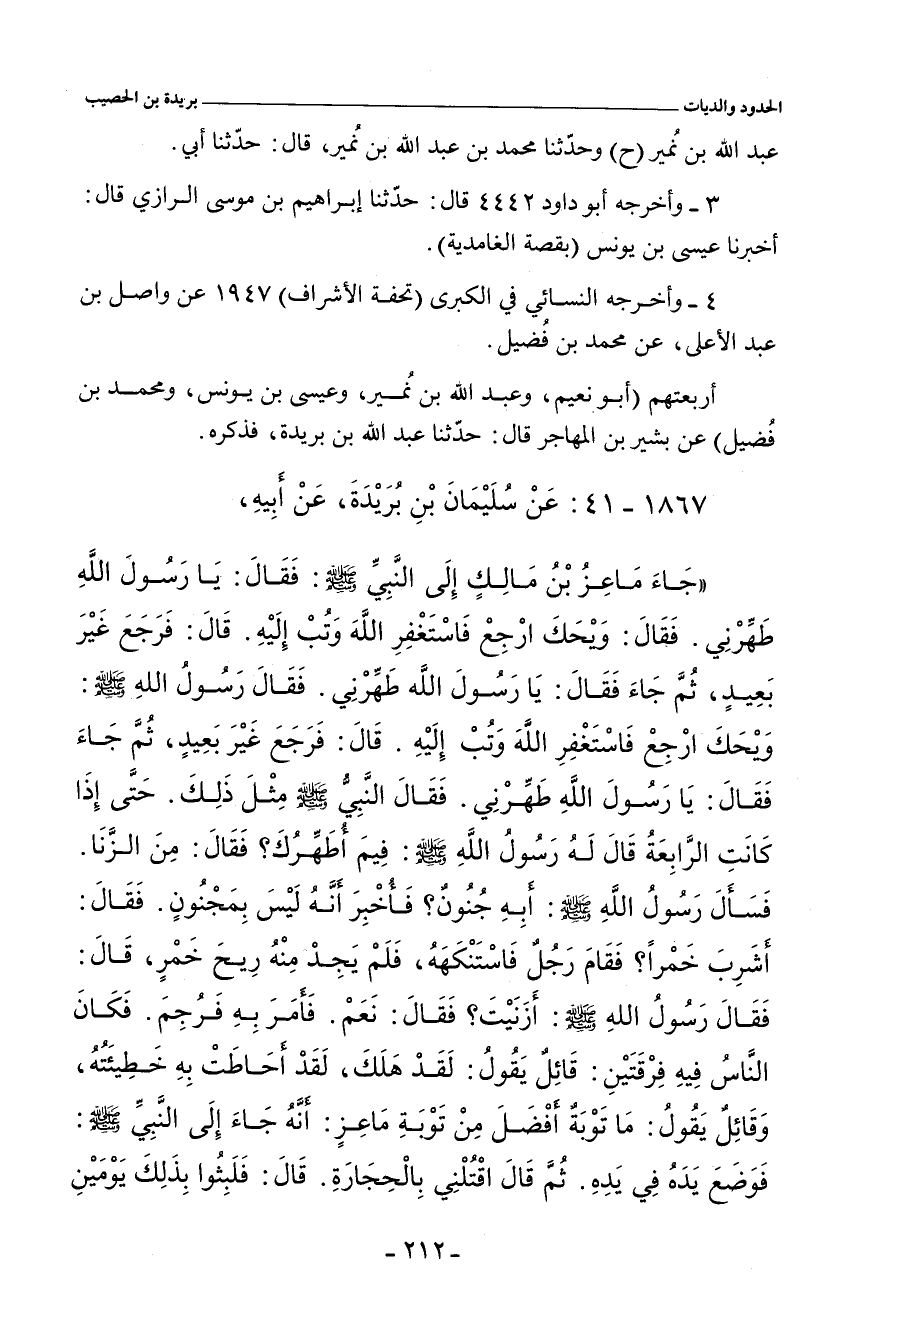 الحدود والديات ــــــــــــــــــــ بريدة بن الحصيب
عبد الله بن نُمير (ح) وحدّثنا محمد بن عبد الله بن نُمير، قال: حدّثنا أبي.
٣ ـ وأخرجه أبو داود ٤٤٤٢ قال: حدّثنا إبراهيم بن موسى الرازي قال:
أخبرنا عيسى بن يونس (بقصة الغامدية).
٤ ـ وأخرجه النسائي في الكبرى (تحفة الأشراف) ١٩٤٧ عن واصل بن
عبد الأعلى، عن محمد بن فُضيل.
أربعتهم (أبو نعيم، وعبد الله بن نُمير، وعيسى بن يونس، ومحمد بن
فُضيل) عن بشير بن المهاجر قال: حدّثنا عبد الله بن بريدة، فذكره.
١٨٦٧ ـ ٤١ : عَنْ سُلَيْمَانَ بْنِ بُرَيْدَةَ، عَنْ أَبِيهِ،
«جَاءَ مَاعِزُ بْنُ مَالِكٍ إِلَى النَّبِيِّ ﷺ : فَقَالَ: يَا رَسُولَ اللَّهِ
طَهِّرْنِي. فَقَالَ: وَيْحَكَ ارْجِعْ فَاسْتَغْفِرِ اللَّهَ وَتُبْ إِلَيْهِ. قَالَ: فَرَجَعَ غَيْرَ
بَعِيدٍ، ثُمَّ جَاءَ فَقَالَ: يَا رَسُولَ اللَّه طَهِّرْنِي. فَقَالَ رَسُولُ اللهِ ﷺ :
وَيْحَكَ ارْجِعْ فَاسْتَغْفِرِ اللَّهَ وَتُبْ إِلَيْهِ . قَالَ: فَرَجَعَ غَيْرَ بَعِيدٍ، ثُمَّ جَاءَ
فَقَالَ: يَا رَسُولَ اللَّهِ طَهِّرْنِي. فَقَالَ النَّبِيُّ ﷺ مِثْلَ ذَلِكَ. حَتَّى إِذَا
كَانَتِ الرَّابِعَةُ قَالَ لَهُ رَسُولُ اللَّهِ ﷺ : فِيمَ أُطَهِّرُكَ؟ فَقَالَ: مِنَ الزَّنَا.
فَسَأَلَ رَسُولُ اللَّهِ ﷺ : أَبِهِ جُنُونٌ؟ فَأُخْبِرَ أَنَّهُ لَيْسَ بِمَجْنُونٍ. فَقَالَ:
أَشَرِبَ خَمْراً؟ فَقَامَ رَجُلٌ فَاسْتَنْكَهَهُ، فَلَمْ يَجِدْ مِنْهُ رِيحَ خَمْرٍ، قَالَ:
فَقَالَ رَسُولُ اللهِ ﷺ : أَزَنَيْتَ؟ فَقَالَ: نَعَمْ. فَأَمَرَ بِهِ فَرُجِمَ. فَكَانَ
النَّاسُ فِيهِ فِرْقَتَيْنِ: قَائِلٌ يَقُولُ: لَقَدْ هَلَكَ، لَقَدْ أَحَاطَتْ بِهِ خَطِيئَتُهُ،
وَقَائِلٌ يَقُولُ: مَا تَوْبَةٌ أَفْضَلَ مِنْ تَوْبَةِ مَاعِزٍ: أَنَّهُ جَاءَ إِلَى النَّبِيِّ ﷺ :
فَوَضَعَ يَدَهُ فِي يَدِهِ. ثُمَّ قَالَ اقْتُلْنِي بِالْحِجَارَةِ. قَالَ: فَلَبِثُوا بِذَلِكَ يَوْمَيْنِ
ـ ٢١٢ ـ